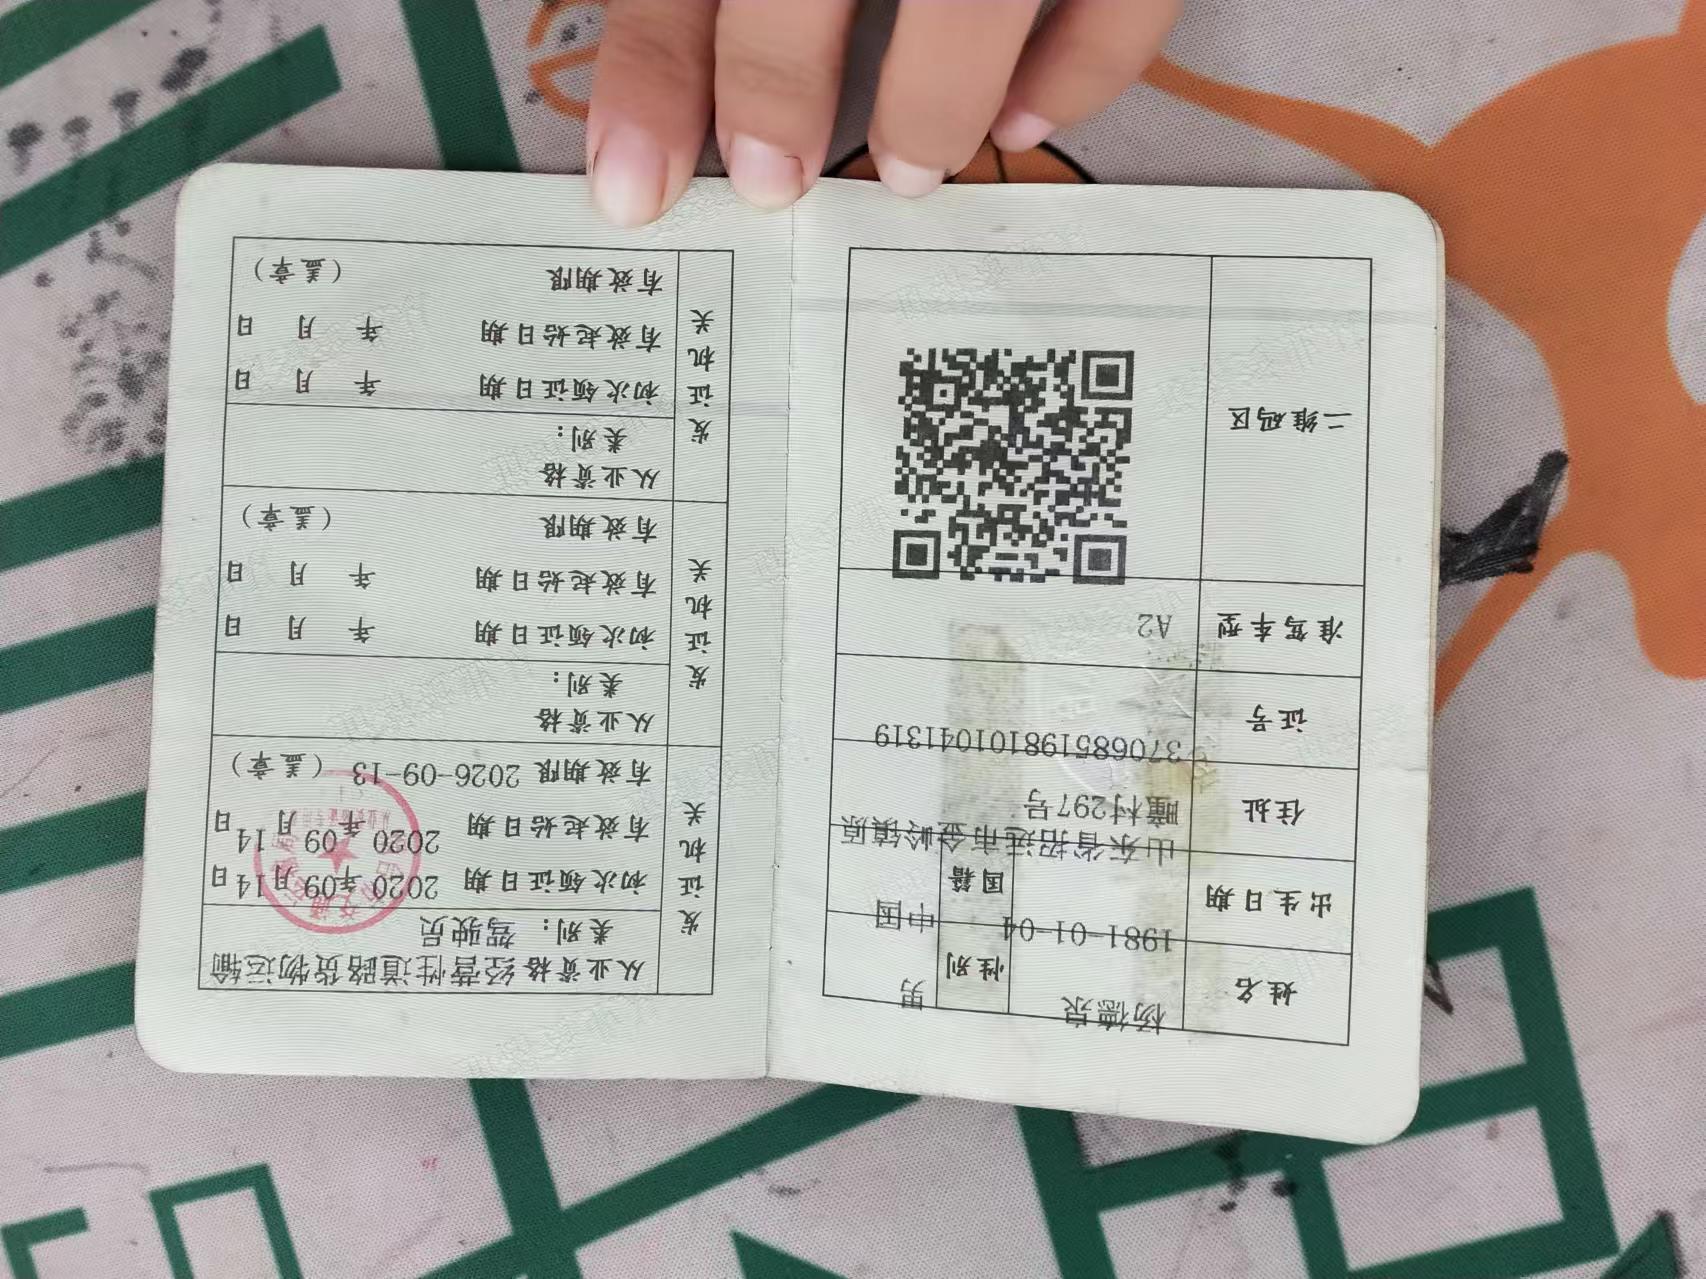 姓名 杨德泉 性别 男
出生日期 1981-01-04 国籍 中国
住址 山东省招远市金岭镇原
疃村297号
证号 370685198101041319
准驾车型 A2
二维码区
从业资格 经营性道路货物运输
类别：驾驶员
初次领证日期 2020年09月14日
有效起始日期 2020年09月14日
有效期限 2026-09-13 （盖章）
发证机关
从业资格
类别：
初次领证日期 年 月 日
有效起始日期 年 月 日
有效期限 （盖章）
发证机关
从业资格
类别：
初次领证日期 年 月 日
有效起始日期 年 月 日
有效期限 （盖章）
发证机关